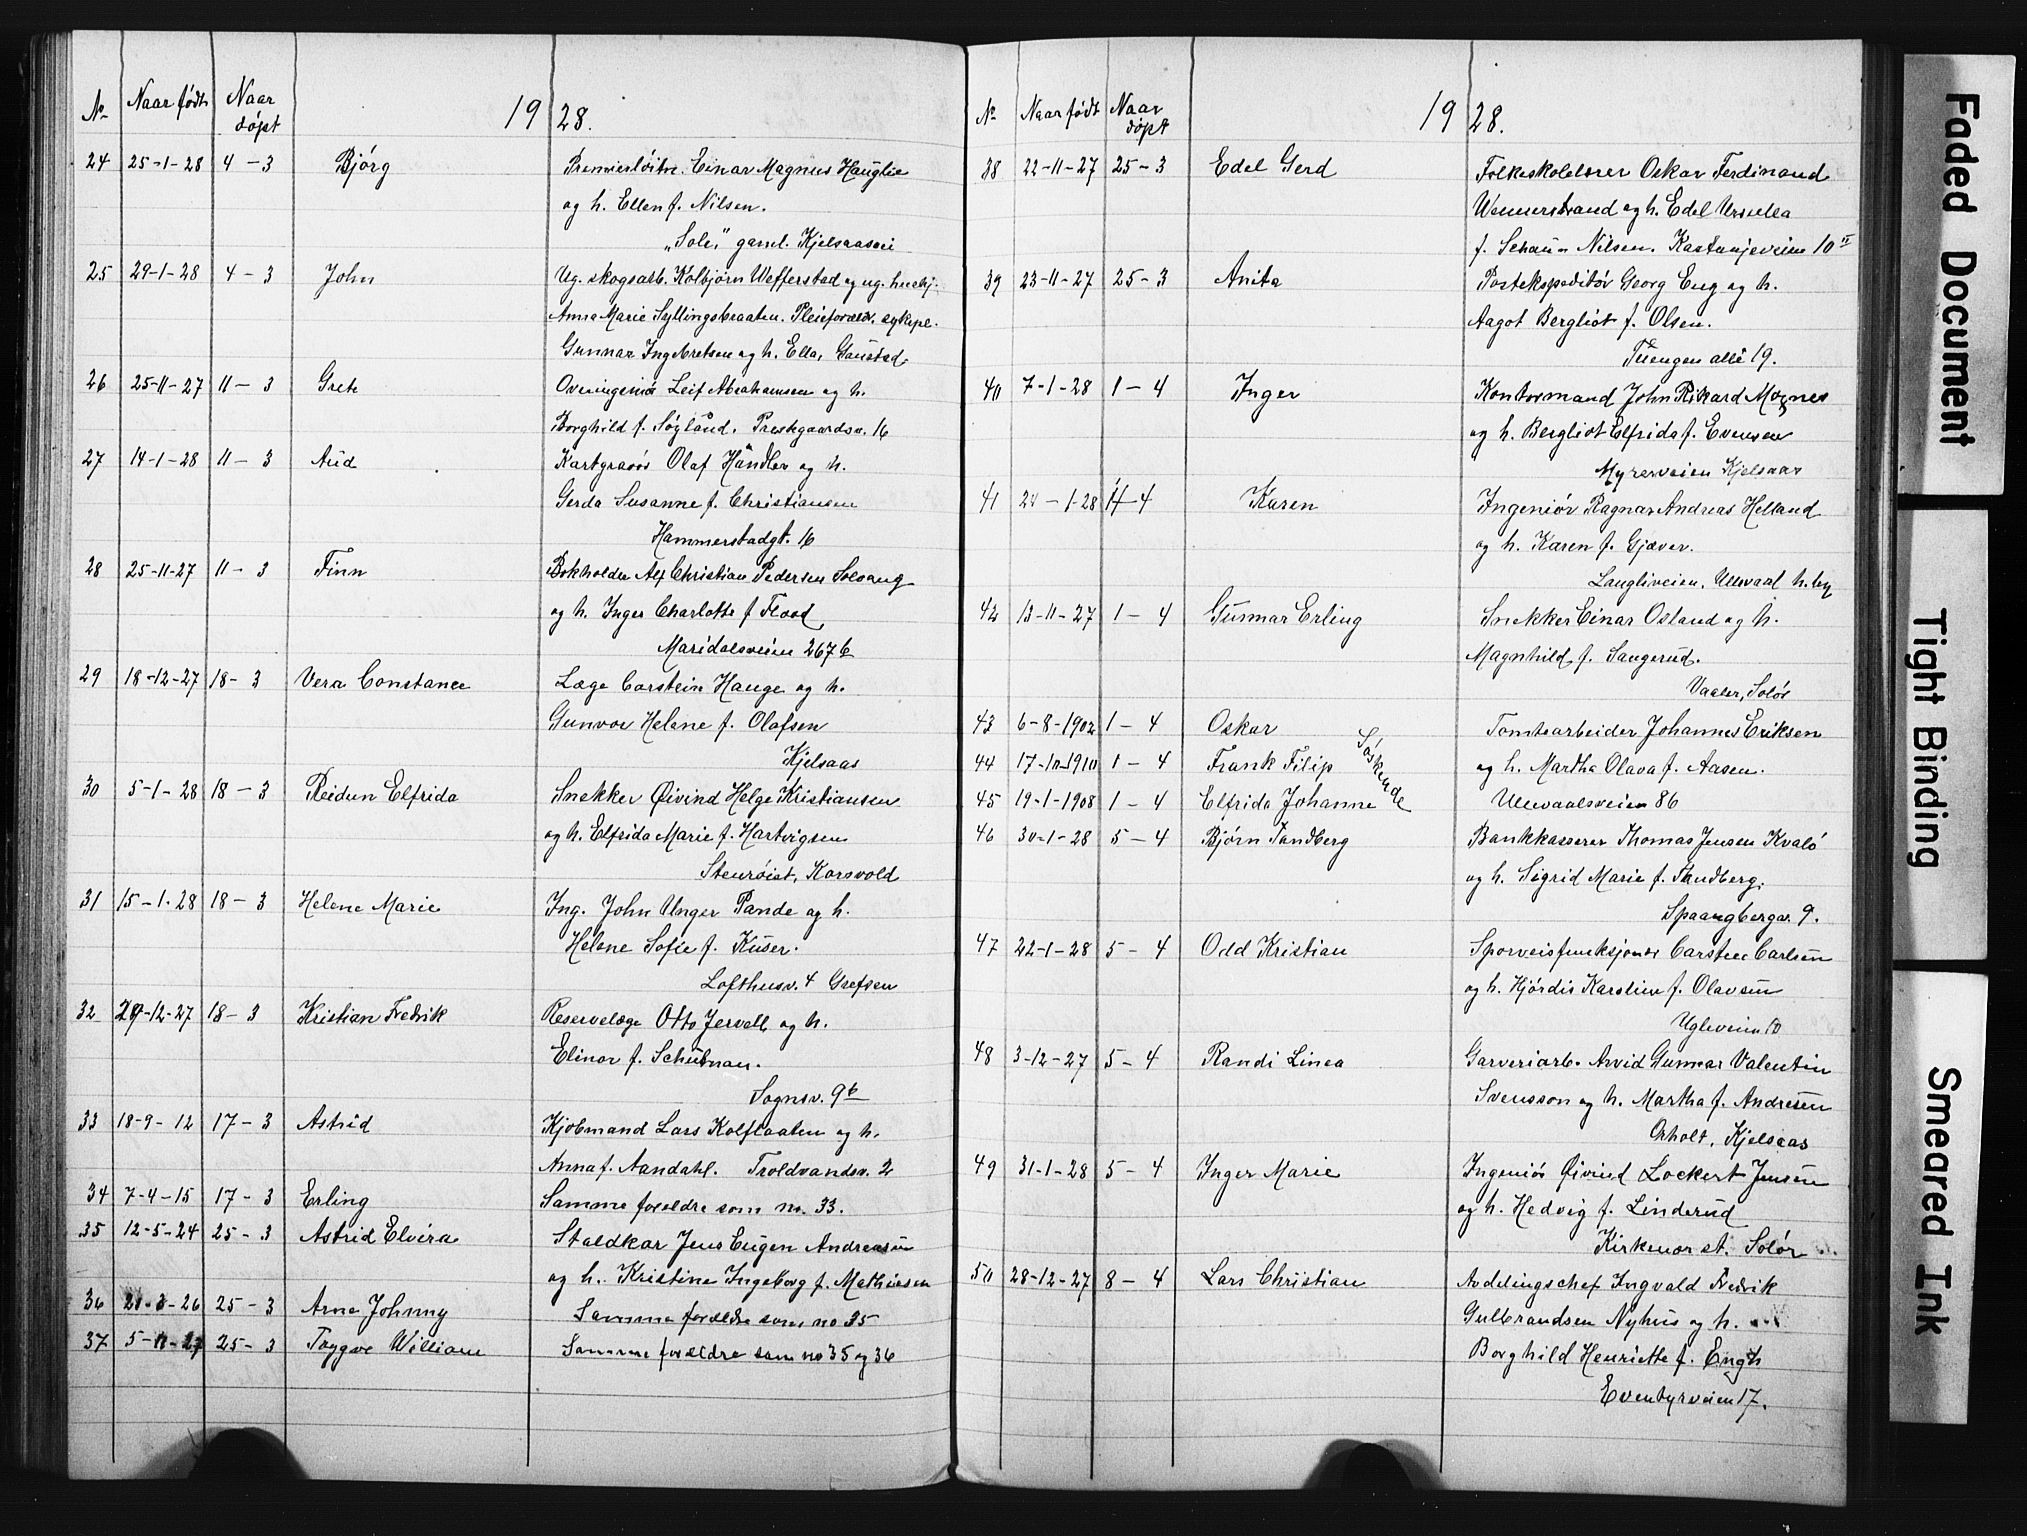 № Naar født Naar døpt 1928.
24 25-1-28 4-3 Bjørg Premierløitn. Einar Magnus Hauglie
og h. Ellen f. Nilsen.
„Soli" gaml. Kjelsaasvei
25 29-1-28 4-3 John Ug. skogsarb. Kolbjørn Wefferstad og ug. hushj.
Anna Marie Syllingsbraaten. Pleieforældr. sykepl.
Gunnar Ingebretsen og h. Ella, Gaustad.
26 25-11-27 11-3 Grete Overingeniør Leif Abrahamsen og h.
Borghild f. Søyland. Prestegaardsv. 16
27 14-1-28 11-3 Aud Kartgravør Olaf Händler og h.
Gerda Susanne f. Christiansen
Hammerstadgt. 16
28 25-11-27 11-3 Finn Bokholder Alf Christian Pedersen Solvang
og h. Inger Charlotte f Flood
Maridalsveien 267 b
29 18-12-27 18-3 Vera Constance Læge Carstein Hauge og h.
Gunvor Helene f. Olafsen
Kjelsaas
30 5-1-28 18-3 Reidun Elfrida Snekker Øivind Helge Kristiansen
og h. Elfrida Marie f. Hartvigsen
Stenrøist, Korsvold
31 15-1-28 18-3 Helene Marie Ing. John Unger Pande og h.
Helene Sofie f. Kuser.
Lofthusv. 4 Grefsen
32 29-12-27 18-3 Kristian Fredrik Reservelæge Otto Jervell og h.
Elinor f.
Sognsv. 9b
33 18-9-12 17-3 Astrid Kjøbmand Lars Kolflaaten og h.
Anna f. Aandahl. Troldvandsv. 2
34 7-4-15 17-3 Erling Samme forældre som no. 33.
35 12-5-24 25-3 Astrid Elvira Staldkar Jens Eugen Andreasen
og h. Kristine Ingeborg f. Mathiesen
36 26 25-3 Arne Johnny Samme forældre som no 35
37 25-3 Trygve William Samme forældre som no 35 og 36
№ Naar født Naar døpt 1928.
38 22-11-27 25-3 Edel Gerd Folkeskolelærer Oskar Ferdinand
Wennerstrand og h. Edel Ursulla
f. Nilsen. Kastanjeveien 10 II
39 23-11-27 25-3 Anita Postekspeditør Georg Eng og h.
Aagot Bergliot f. Olsen.
Tuengen allé 19.
40 7-1-28 1-4 Inger Kontormand John Rikard Magnes
og h. Bergliot Elfrida f. Evensen
Myrerveien Kjelsaas
41 24-1-28 4 Karen Ingeniør Ragnar Andreas Helland
og h. Karen f. Gjæver.
Langliveien, Ullevaal h.by
42 13-11-27 1-4 Gunnar Erling Snekker Einar Osland og h.
Magnhild f. Sangerud.
Vaaler, Solør
43 6-8-1902 1-4 Oskar Tomtearbeider Johannes Eriksen
44 17-10-1910 1-4 Frank Filip og h. Martha Olava f. Aasen.
45 19-1-1908 1-4 Elfrida Johanne Søskende Ullevaalsveien 86
46 30-1-28 5-4 Bjørn Tandberg Bankkasserer Thomas Jensen Kvalø
og h. Sigrid Marie f. Tandberg.
Spaangbergv. 9.
47 22-1-28 5-4 Odd Kristian Sporveisfunksjonær Carsten Carlsen
og h. Hjørdis Karstine f. Olavsen
Ugleveien 10
48 3-12-27 5-4 Randi Linea Garveriarb. Arvid Gunnar Valentin
Svensson og h. Martha f. Andresen
Orholt, Kjelsaas
49 31-1-28 5-4 Inger Marie Ingeniør Øivind Lockert Jensen
og h. Hedvig f. Linderud
Kirkenær st. Solør
50 28-12-27 8-4 Lars Christian Avdelingschef Ingvald Fredrik
Gulbrandsen Nyhus og h.
Borghild Henriette f. Engh
Eventyrveien 17.
Faded Document
Tight Binding
Smeared Ink